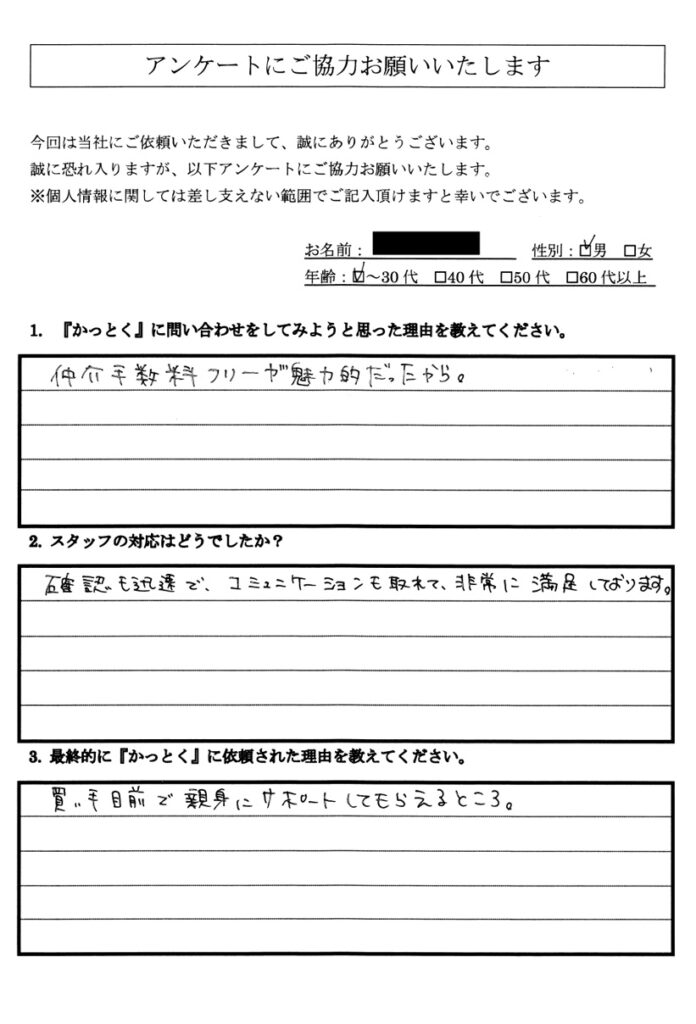 アンケートにご協力お願いいたします
今回は当社にご依頼いただきまして、誠にありがとうございます。
誠に恐れ入りますが、以下アンケートにご協力お願いいたします。
※個人情報に関しては差し支えない範囲でご記入頂けますと幸いでございます。
お名前： 性別：☑男 □女
年齢：☑～30代 □40代 □50代 □60代以上
1. 『かっとく』に問い合わせをしてみようと思った理由を教えてください。
仲介手数料フリーが魅力的だったから。
2. スタッフの対応はどうでしたか？
確認も迅速で、コミュニケーションも取れて、非常に満足しております。
3. 最終的に『かっとく』に依頼された理由を教えてください。
買い手目前で親身にサポートしてもらえるところ。